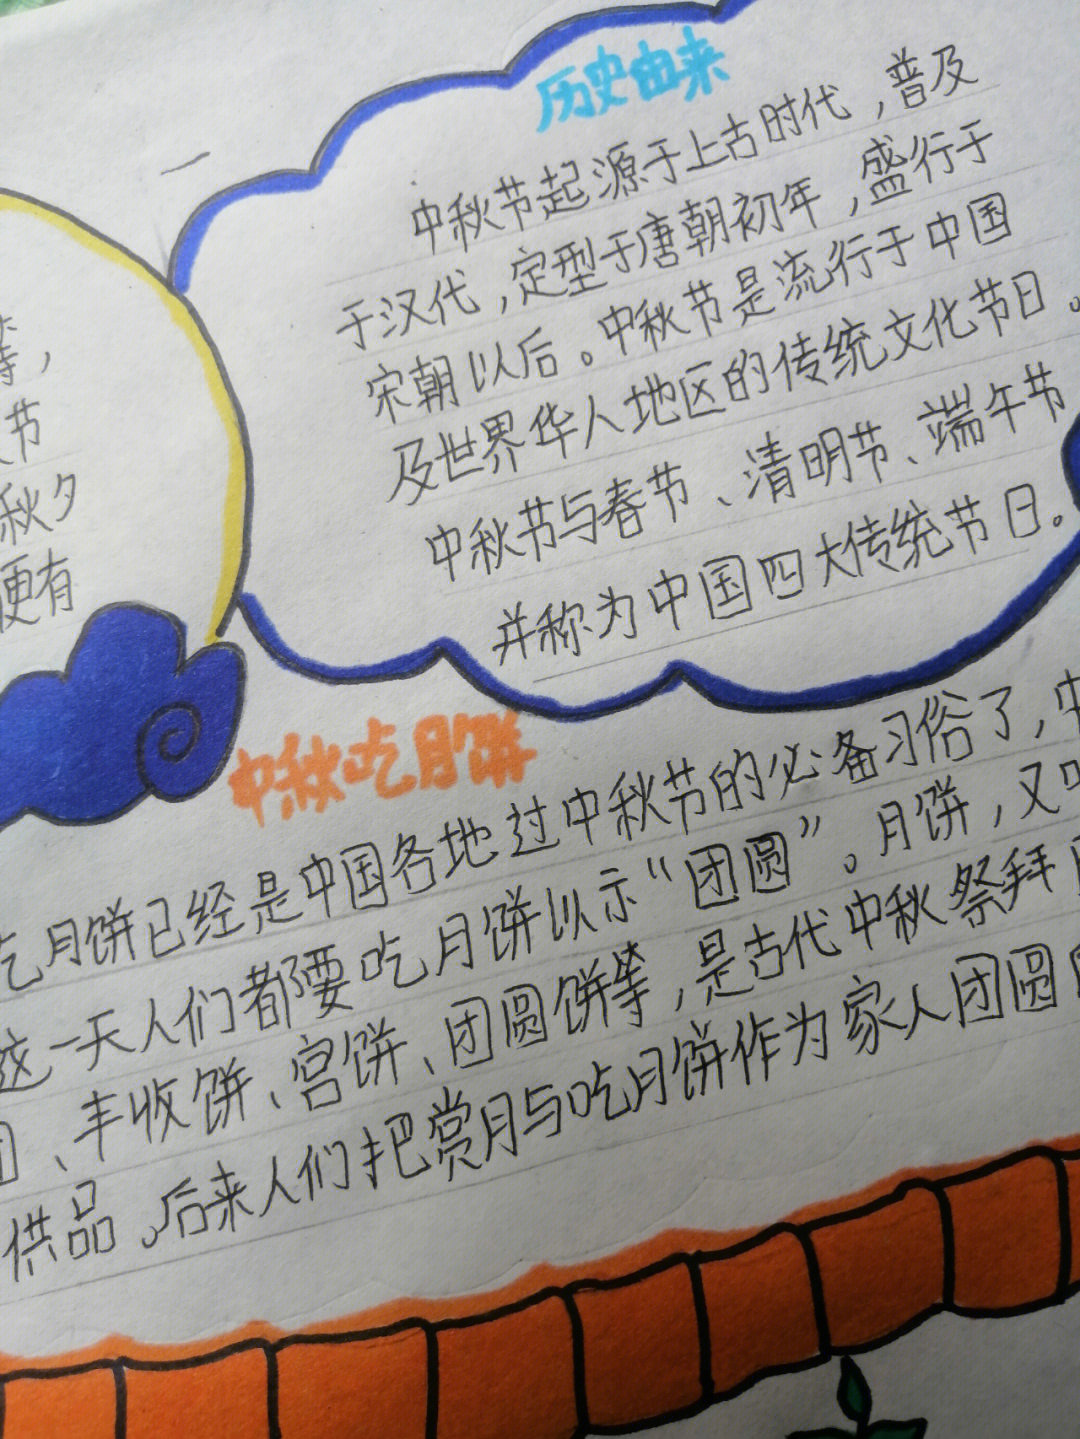 历史由来
中秋节起源于上古时代，普及
于汉代，定型于唐朝初年，盛行于
宋朝以后。中秋节是流行于中国
及世界华人地区的传统文化节日。
中秋节与春节、清明节、端午节
并称为中国四大传统节日。
等，
节
秋夕
更有
中秋吃月饼
吃月饼已经是中国各地过中秋节的必备习俗了，中
这一天人们都要吃月饼以示“团圆”。月饼，又
、丰收饼、宫饼、团圆饼等，是古代中秋祭拜
供品。后来人们把赏月与吃月饼作为家人团圆